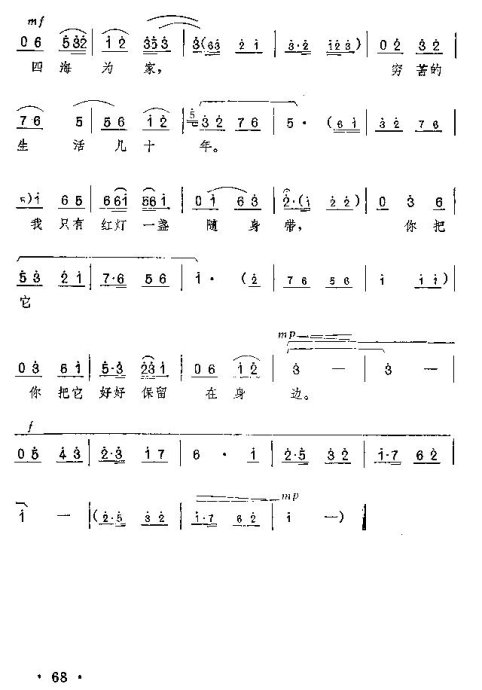 mf
0 6 5 3 2 | 1 2 3 5 3 | 3 ( 6 3 2 1 | 3 · 2 1 2 3 ) | 0 2 3 2 |
四 海 为 家， 穷 苦 的
7 6 5 | 5 6 1 2 | 3 2 7 6 | 5 · ( 6 1 | 3 2 7 6 | 2 2 ) |
生 活 几 十 年。
5 ) i 6 5 | 6 6 1 5 6 1 | 0 1 6 3 | 2 · ( 1 2 2 ) | 0 3 6 |
我 只有 红灯 一盏 随 身 带， 你 把
5 3 2 1 | 7 · 6 5 6 | 1 · ( 2 | 7 6 5 6 | 1 1 1 ) |
它
mp
0 3 6 1 | 5 · 3 2 3 1 | 0 6 1 2 | 3 — | 3 — |
你 把它 好好 保留 在 身 边。
f
0 5 4 3 | 2 · 3 1 7 | 6 · 1 | 2 · 5 3 2 | 1 · 7 6 2 |
mp
1 — | ( 2 · 5 3 2 | 1 · 7 6 2 | 1 — ) ‖
· 68 ·